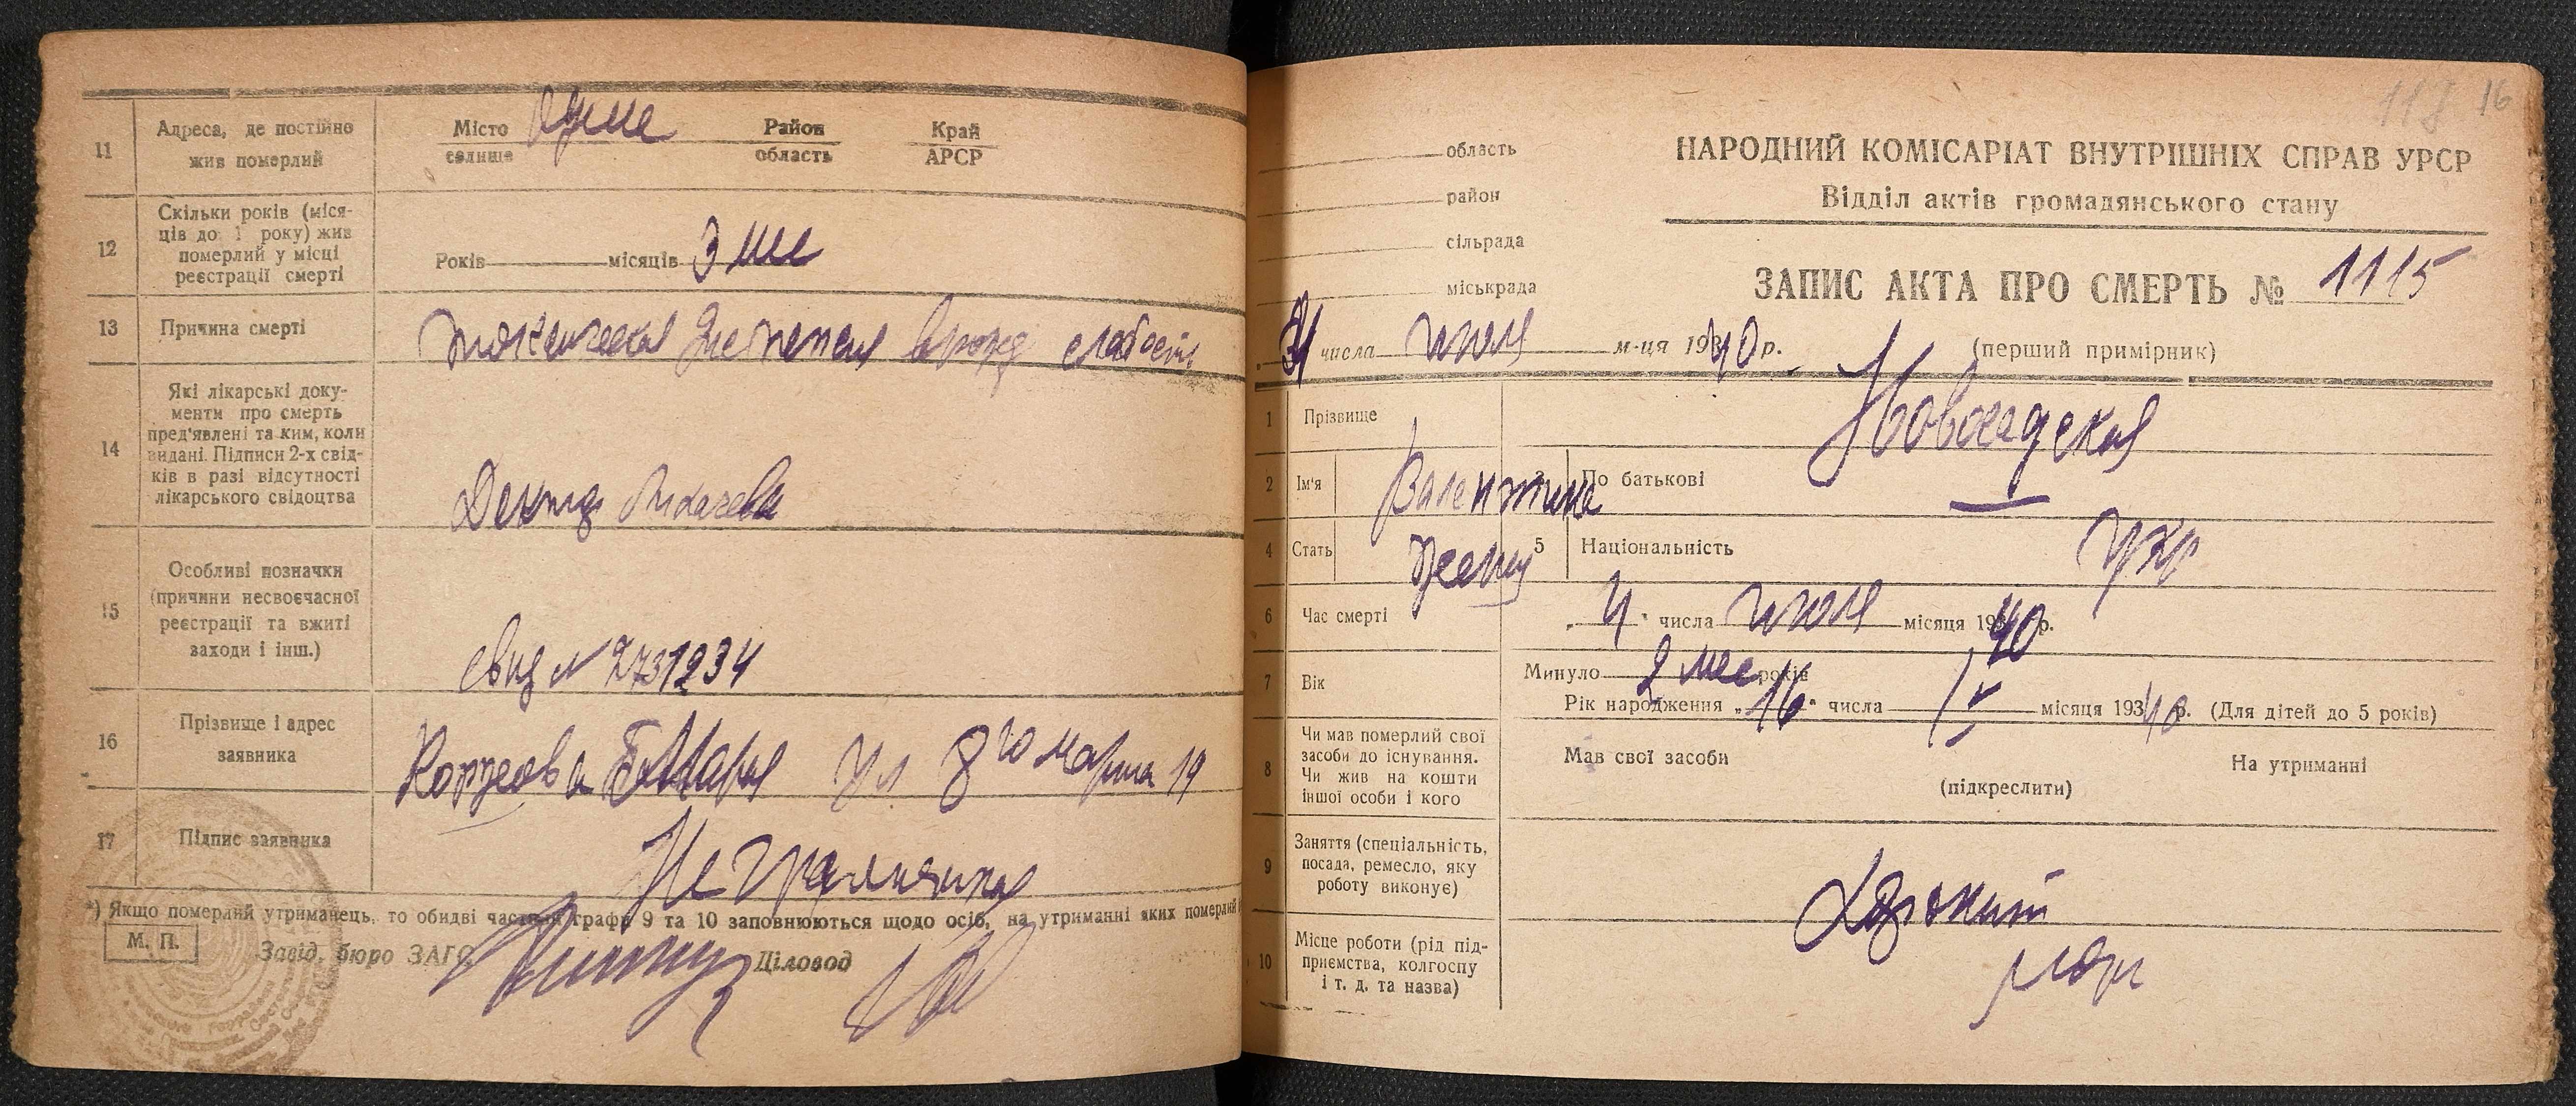 11 Адреса, де постійно жив померлий
Місто селище
Район область
Край АРСР
12 Скільки років (місяців до 1 року) жив померлий у місці реєстрації смерті
Років місяців 3 мес
13 Причина смерті
токсическая диспепсия врожд слабость
14 Які лікарські документи про смерть пред'явлені та ким, коли видані. Підписи 2-х свідків в разі відсутності лікарського свідоцтва
15 Особливі позначки (причини несвоєчасної реєстрації та вжиті заходи і інш.)
свид № 2731234
16 Прізвище і адрес заявника
Ул 8го марта 19
17 Підпис заявника
Неграмотная
*) Якщо померлий утриманець, то обидві частини графи 9 та 10 заповнюються щодо осіб, на утриманні яких померлий
М. П.
Завід. бюро ЗАГС
Діловод
118 16
область
район
сільрада
міськрада
НАРОДНИЙ КОМІСАРІАТ ВНУТРІШНІХ СПРАВ УРСР
Відділ актів громадянського стану
ЗАПИС АКТА ПРО СМЕРТЬ № 1115
числа июля м-ця 1940 р. (перший примірник)
1 Прізвище Новосадская
2 Ім'я Валентина 3 По батькові —
4 Стать женщ 5 Національність укр
6 Час смерті
числа июля місяця 1940 р.
7 Вік
Минуло 2 мес років
Рік народження „16" числа місяця 1940 р. (Для дітей до 5 років)
8 Чи мав померлий свої засоби до існування. Чи жив на кошти іншої особи і кого
Мав свої засоби
(підкреслити)
На утриманні
9 Заняття (спеціальність, посада, ремесло, яку роботу виконує)
10 Місце роботи (рід підприємства, колгоспу і т. д. та назва)